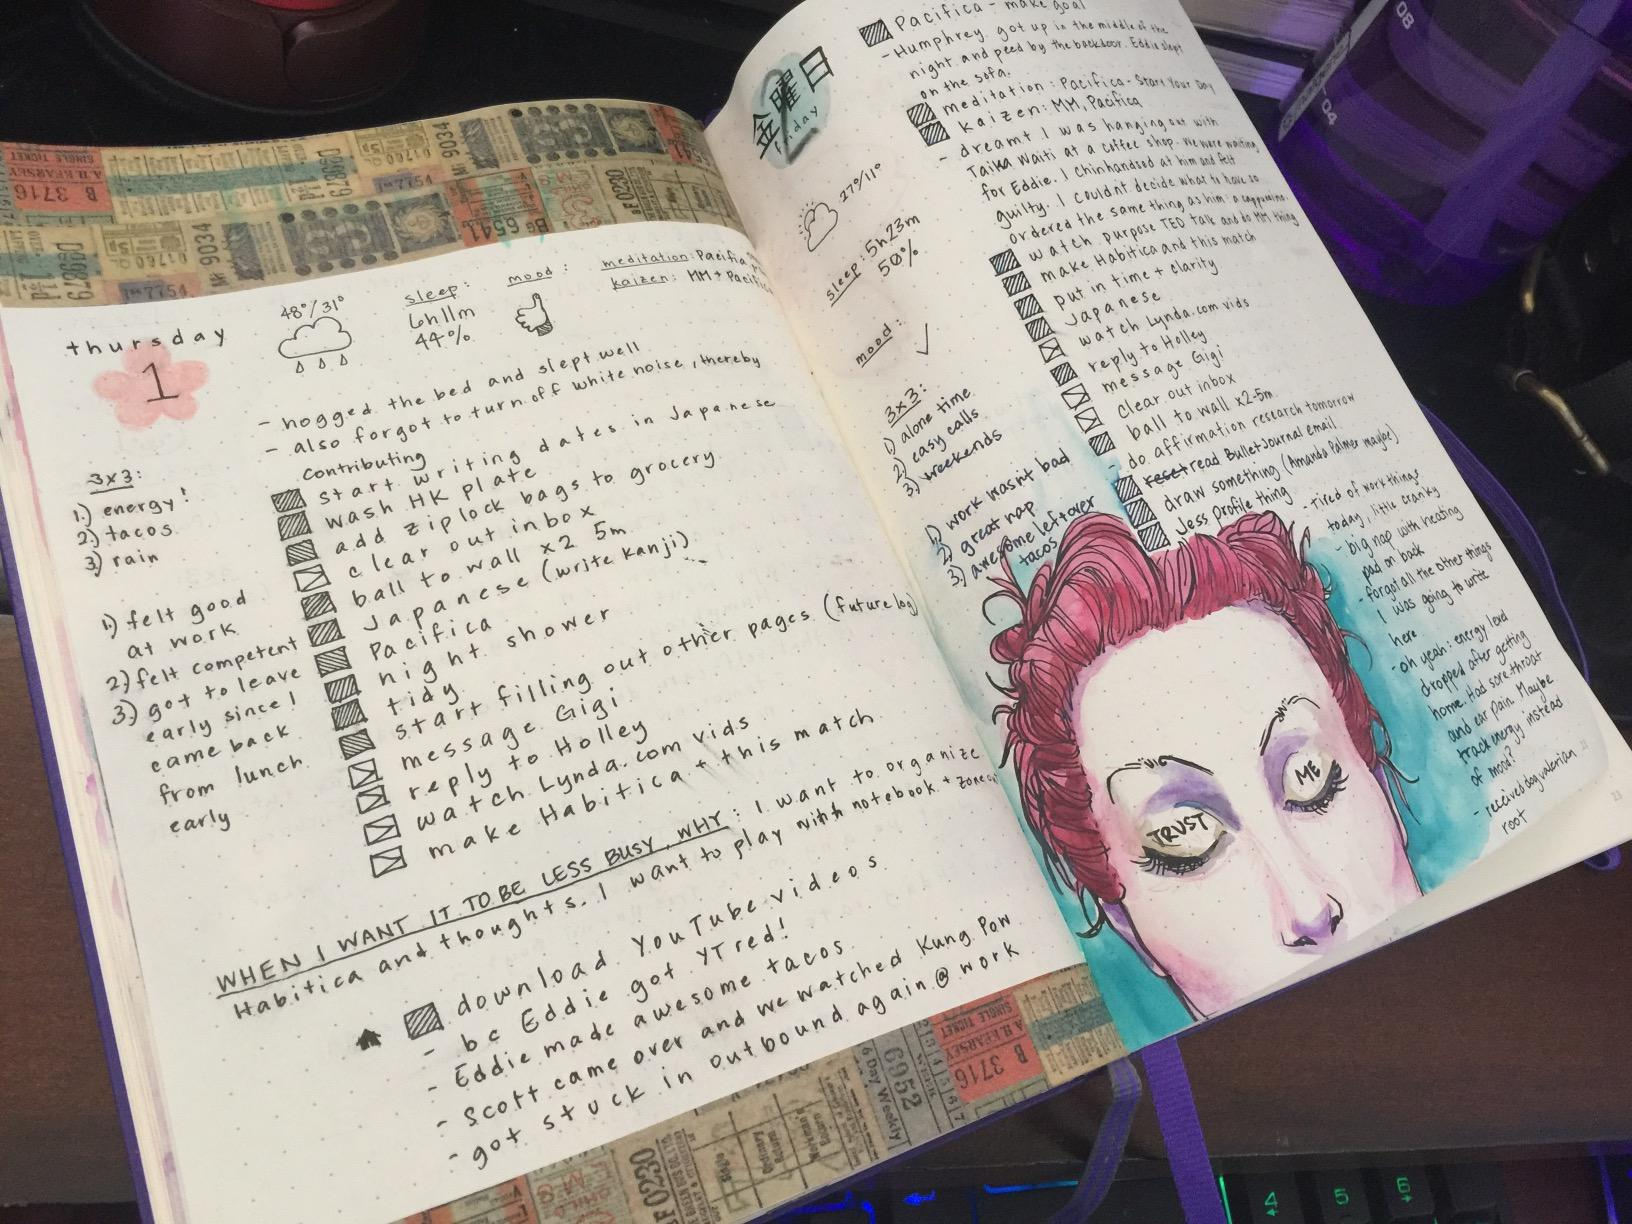 thursday
1
48°/31°
sleep:
6h11m
44%
mood:
meditation: Pacifica
kaizen: MM + Pacifica
- hogged the bed and slept well
- also forgot to turn off white noise, thereby
contributing
3x3:
1) energy!
2) tacos
3) rain
1) felt good
at work
2) felt competent
3) got to leave
early since I
came back
from lunch
early
start writing dates in Japanese
wash HK plate
add ziplock bags to grocery
clear out inbox
ball to wall x2 5m
Japanese (write kanji)
Pacifica
night shower
tidy
start filling out other pages (future log)
message Gigi
reply to Holley
watch Lynda.com vids
make Habitica + this match
WHEN I WANT IT TO BE LESS BUSY, WHY: I want to organize
Habitica and thoughts. I want to play with notebook + zone
download YouTube videos
- bc Eddie got YT red!
- Eddie made awesome tacos
- Scott came over and we watched Kung Pow
- got stuck in outbound again @ work
金曜日
friday
27°/11°
sleep: 5h23m
50%
mood:
3x3:
1) alone time
2) easy calls
3) weekends
1) work wasn't bad
2) great nap
3) awesome leftover
tacos
Pacifica - make goal
- Humphrey got up in the middle of the
night and peed by the backdoor. Eddie slept
on the sofa.
meditation: Pacifica - Start Your Day
kaizen: MM, Pacifica
- dreamt I was hanging out with
Taika Waiti at a coffee shop. We were waiting
for Eddie. I chinhandsed at him and felt
guilty. I couldnt decide what to have so
ordered the same thing as him: a cappuccino.
watch purpose TED talk and do MM thing
make Habitica and this match
put in time + clarity
Japanese
watch Lynda.com vids
reply to Holley
message Gigi
clear out inbox
ball to wall x2-5m
- do affirmation research tomorrow
read BulletJournal email
draw something (Amanda Palmer maybe)
Jess Profile thing
- tired of work things
today, little cranky
- big nap with heating
pad on back
- forgot all the other things
I was going to write
here
- oh yeah: energy level
dropped after getting
home. Had sore throat
and ear pain. Maybe
track energy instead
of mood?
- received dog valerian
root
TRUST
ME
23
SINGLE TICKET
A.H. KEARSEY
B 3716
PIT
08976
01760
7754
M 9034
BF 0230
Bg 6541
SINGLE TICKET
A.H. KEARSEY
B 3716
6952
6 Day Weekly
F 0230
08
04
4
5
6